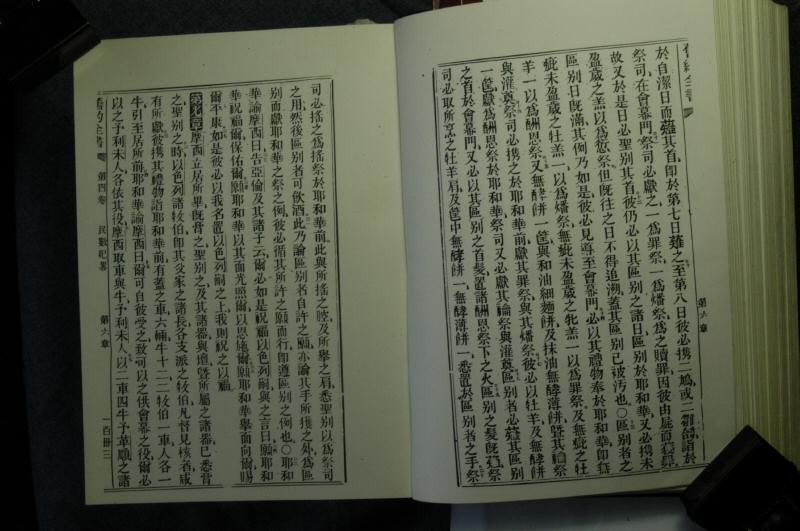 第六章
於自潔日而薙其首即於第七日薙之至第八日彼必攜二鳩或二雛鴿詣於
祭司在會幕門祭司必獻之一為罪祭一為燔祭為之贖罪因彼由屍而
故又於是日必聖別其首彼仍必以其區別之諸日區別於耶和華又必攜未
盈歲之羔以為愆祭但既往之日不得追溯蓋其區別已被污也〇區別者之
區別日既滿其例乃如是彼必見導至會幕門必以其禮物奉於耶和華即無
疵未盈歲之牡羔一以為燔祭無疵未盈歲之牝羔一以為罪祭及無疵之牡
羊一以為酬恩祭又無酵餅一筐與和油細麵餅及抹油無酵薄餅暨其祭
與灌奠祭司必攜之於耶和華前獻其罪祭與其燔祭彼必以牡羊及無酵餅
一筐獻為酬恩祭於耶和華祭司又必獻其祭與灌奠區別者必薙其區別
之首於會幕門又必以其區別之首髮置諸酬恩祭下之火區別之髮既薙祭
司必取所烹之牡羊肩及筐中無酵餅一無酵薄餅一悉置於區別者之手祭
司必搖之為搖祭於耶和華前此與所搖之腔及所舉之肩悉聖別以為祭司
之用然後區別者可飲酒此乃論區別者自許之願亦論其手所獲之外為區
別而獻耶和華之祭之例彼必循其所許之願而行即遵區別之例也〇耶和
華諭摩西曰告亞倫及其諸子云爾必如是祝福以色列嗣與之言曰願耶和
華祝福爾保佑爾願耶和華以其面光照爾以恩施爾願耶和華舉面向爾賜
爾平康如是彼必以我名置以色列嗣之上我則祝之以福
第七章摩西立居所畢既膏之聖別之及其諸器與壇暨所屬之諸器已悉膏
之聖別之時以色列諸牧伯即其父家之諸長各支派之牧伯凡督見核者咸
有所獻彼攜其禮物詣耶和華前有蓋之車六輛牛十二二牧伯一車人各一
牛引至居所前耶和華諭摩西曰爾可自彼受之致可以之供會幕之役爾必
以之予利未人各依其役摩西取車與牛予利未人以二車四牛予革順之諸
第四卷 民數紀畧 第六章 一百卌三